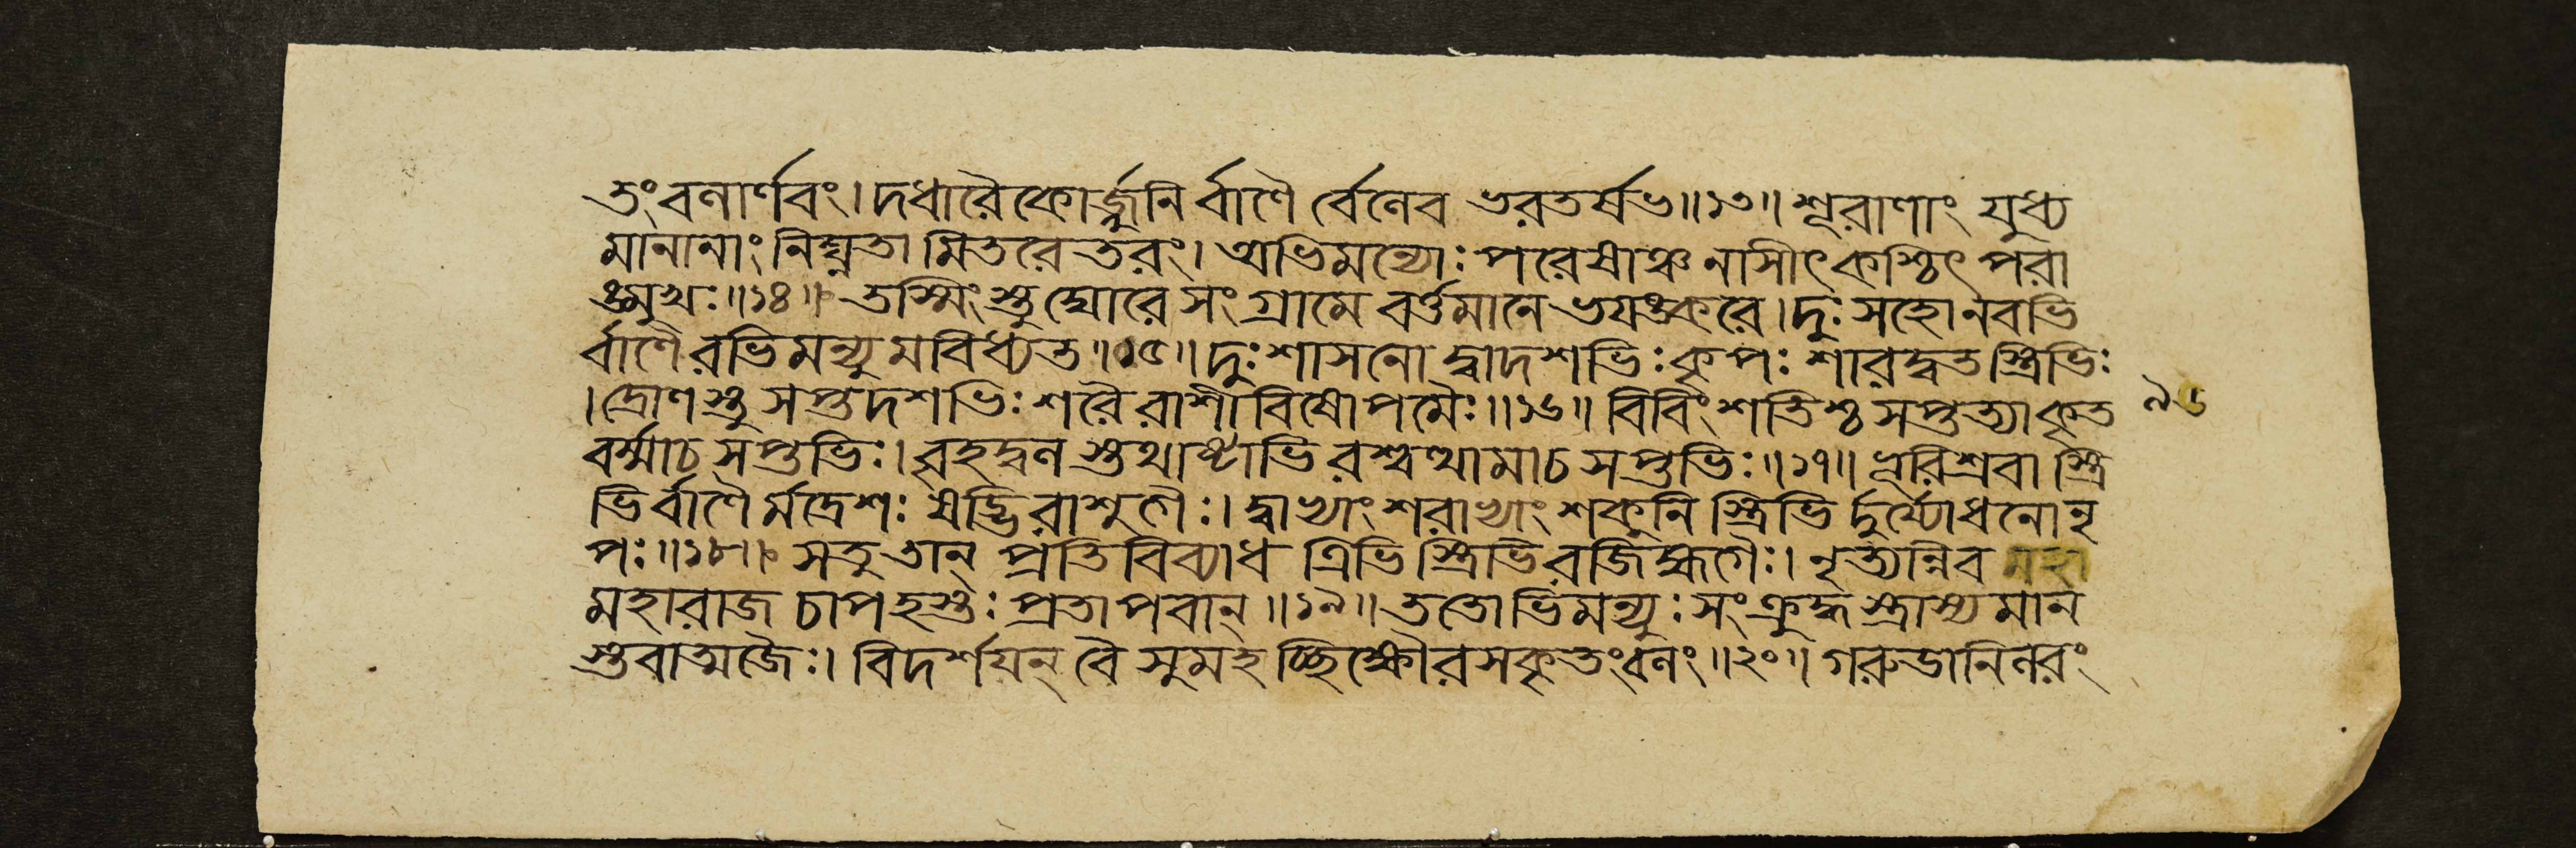 তংবনার্ণবং। দধারৈকোর্জ্জুনির্বাণৈর্বেনেব ভরতর্ষভ॥১৩॥ শূরাণাং যুধ্য
মানানাং নিঘ্নতামিতরেতরং। অভিমন্যোঃ পরেষাঞ্চ নাসীৎকশ্চিৎ পরা
ঙ্মুখঃ॥১৪॥ তস্মিংস্তু ঘোরে সংগ্রামে বর্ত্তমানে ভয়ঙ্করে। দুঃসহোনবভি
র্বাণৈরভিমন্যুমবিধ্যত॥১৫॥ দুঃশাসনো দ্বাদশভিঃ কৃপঃ শারদ্বতস্ত্রিভিঃ
। দ্রোণস্তু সপ্তদশভিঃ শরৈরাশীবিষোপমৈঃ॥১৬॥ বিবিংশতিশ্চ সপ্তত্যাকৃত
বর্ম্মাচ সপ্তভিঃ। বৃহদ্বলস্তথাষ্টাভিরশ্বত্থামাচ সপ্তভিঃ॥১৭॥ ভূরিশ্রবাস্ত্রি
ভির্বাণৈর্মদ্রেশঃ ষড্ভিরাশুগৈঃ। দ্বাভ্যাং শরাভ্যাং শকুনিস্ত্রিভির্দুর্য্যোধনোনৃ
পঃ॥১৮॥ সতু তান্ প্রতিবিব্যাধ ত্রিভিস্ত্রিভিরজিহ্মগৈঃ। নৃত্যন্নিব
মহারাজ চাপহস্তঃ প্রতাপবান্॥১৯॥ ততোভিমন্যুঃ সংক্রুদ্ধস্ত্রাস্যমান
স্তবাত্মজৈঃ। বিদর্শয়ন্ বৈ সুমহচ্ছিক্ষৌরসকৃতংবলং॥২০॥ গরুডানিলরং
৯৬